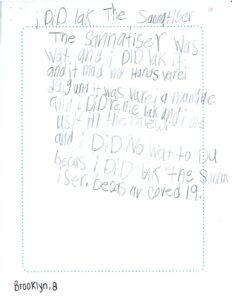 i DiD lak The Sannatiser
The Sannatiser was
wat. and i DiD lak it.
and it mad my Hands varei
and it was varei a
and i DiD lak and i
usit in the
and i DiD No wat to Du
becas i DiD lak the Sann
iser. becas av coved 19.
Brooklyn, 8